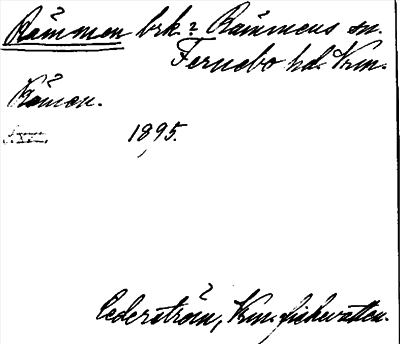 Rämmen brk. i Rämmens sn.
Fernebo hd. Vrm.
Rämen.
1895.
Cederström, Vrm. fiskvatten.